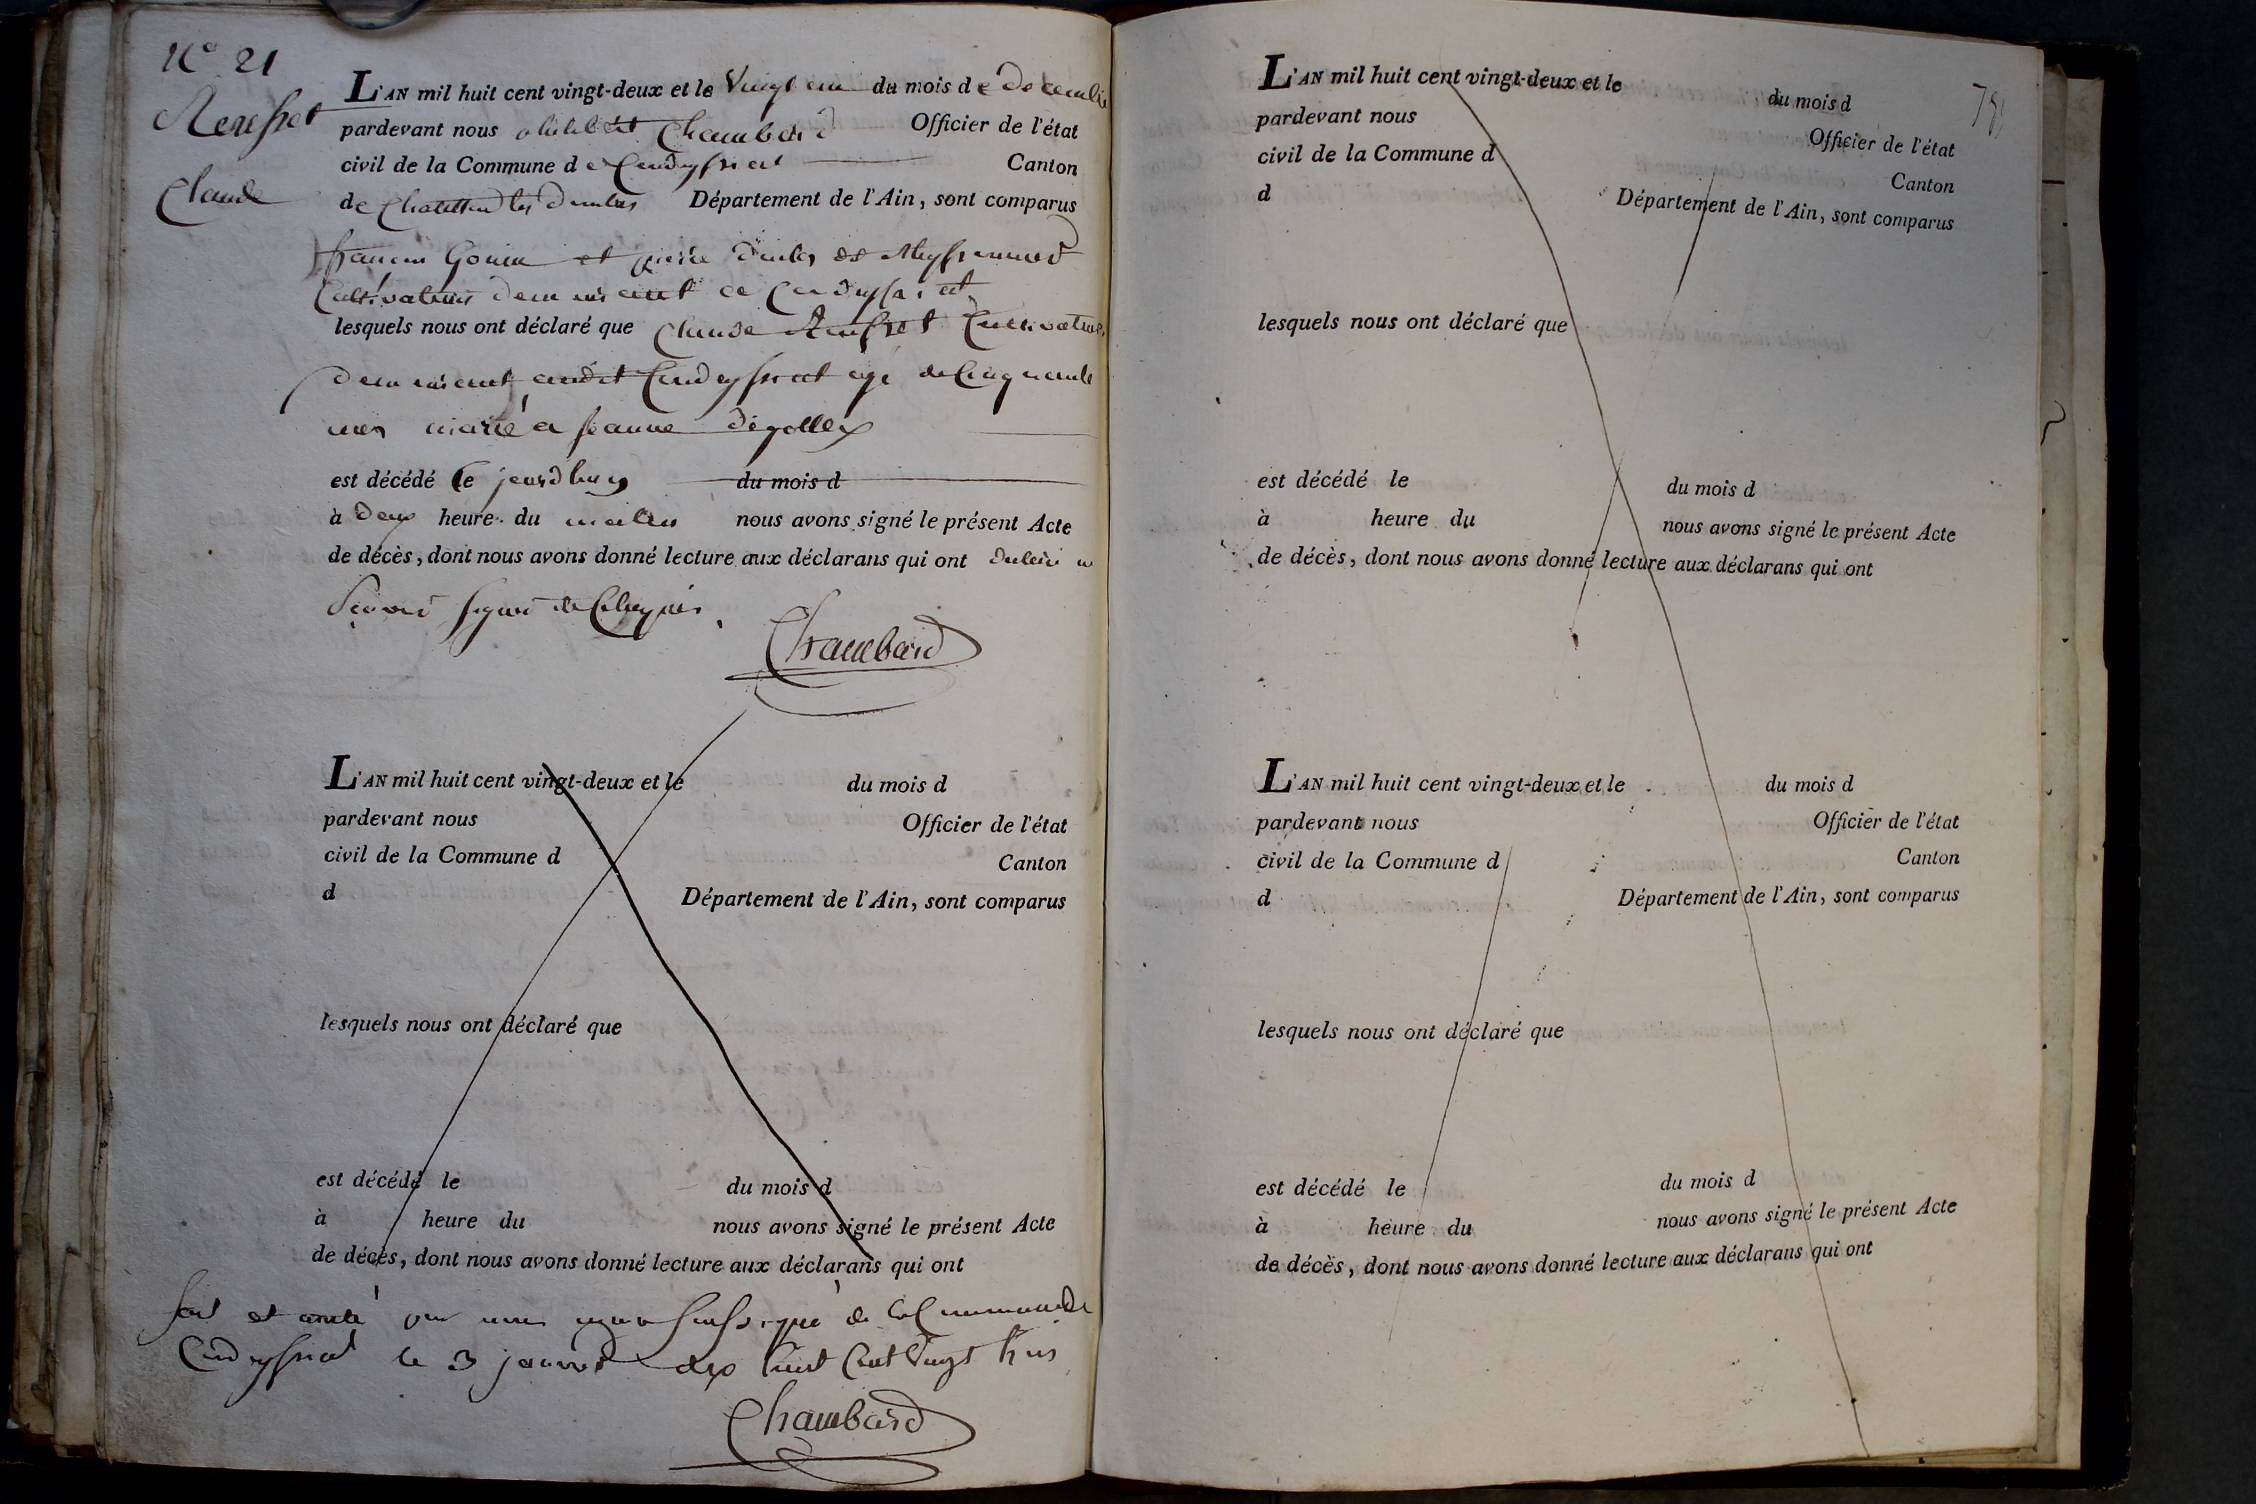 N° 21
Claude
L'AN mil huit cent vingt-deux et le Vingt du mois de Decembre
pardevant nous philibert Chambard Officier de l'état
civil de la Commune de Condeyssiat Canton
de Chatillon les Dombes Département de l'Ain, sont comparus
francois Gonin et pierre
Cultivateurs demeurant a Condeyssiat
lesquels nous ont déclaré que Claude Cultivateur
demeurant audit Condeyssiat agé de Cinquante
marié a Jeanne
est décédé le jourdhuy du mois d
à deux heure du matin nous avons signé le présent Acte
de décès, dont nous avons donné lecture aux déclarans qui ont
signé de Ce Requis.
Chambard
L'AN mil huit cent vingt-deux et le du mois d
pardevant nous Officier de l'état
civil de la Commune d Canton
d Département de l'Ain, sont comparus
lesquels nous ont déclaré que
est décédé le du mois d
à heure du nous avons signé le présent Acte
de décès, dont nous avons donné lecture aux déclarans qui ont
fait et areté par nous maire soussigné de la Commune de
Condeyssiat le 3 janvier dix huit Cent Vingt trois
Chambard
L'AN mil huit cent vingt-deux et le du mois d
pardevant nous Officier de l'état
civil de la Commune d Canton
d Département de l'Ain, sont comparus
lesquels nous ont déclaré que
est décédé le du mois d
à heure du nous avons signé le présent Acte
de décès, dont nous avons donné lecture aux déclarans qui ont
L'AN mil huit cent vingt-deux et le du mois d
pardevant nous Officier de l'état
civil de la Commune d Canton
d Département de l'Ain, sont comparus
lesquels nous ont déclaré que
est décédé le du mois d
à heure du nous avons signé le présent Acte
de décès, dont nous avons donné lecture aux déclarans qui ont